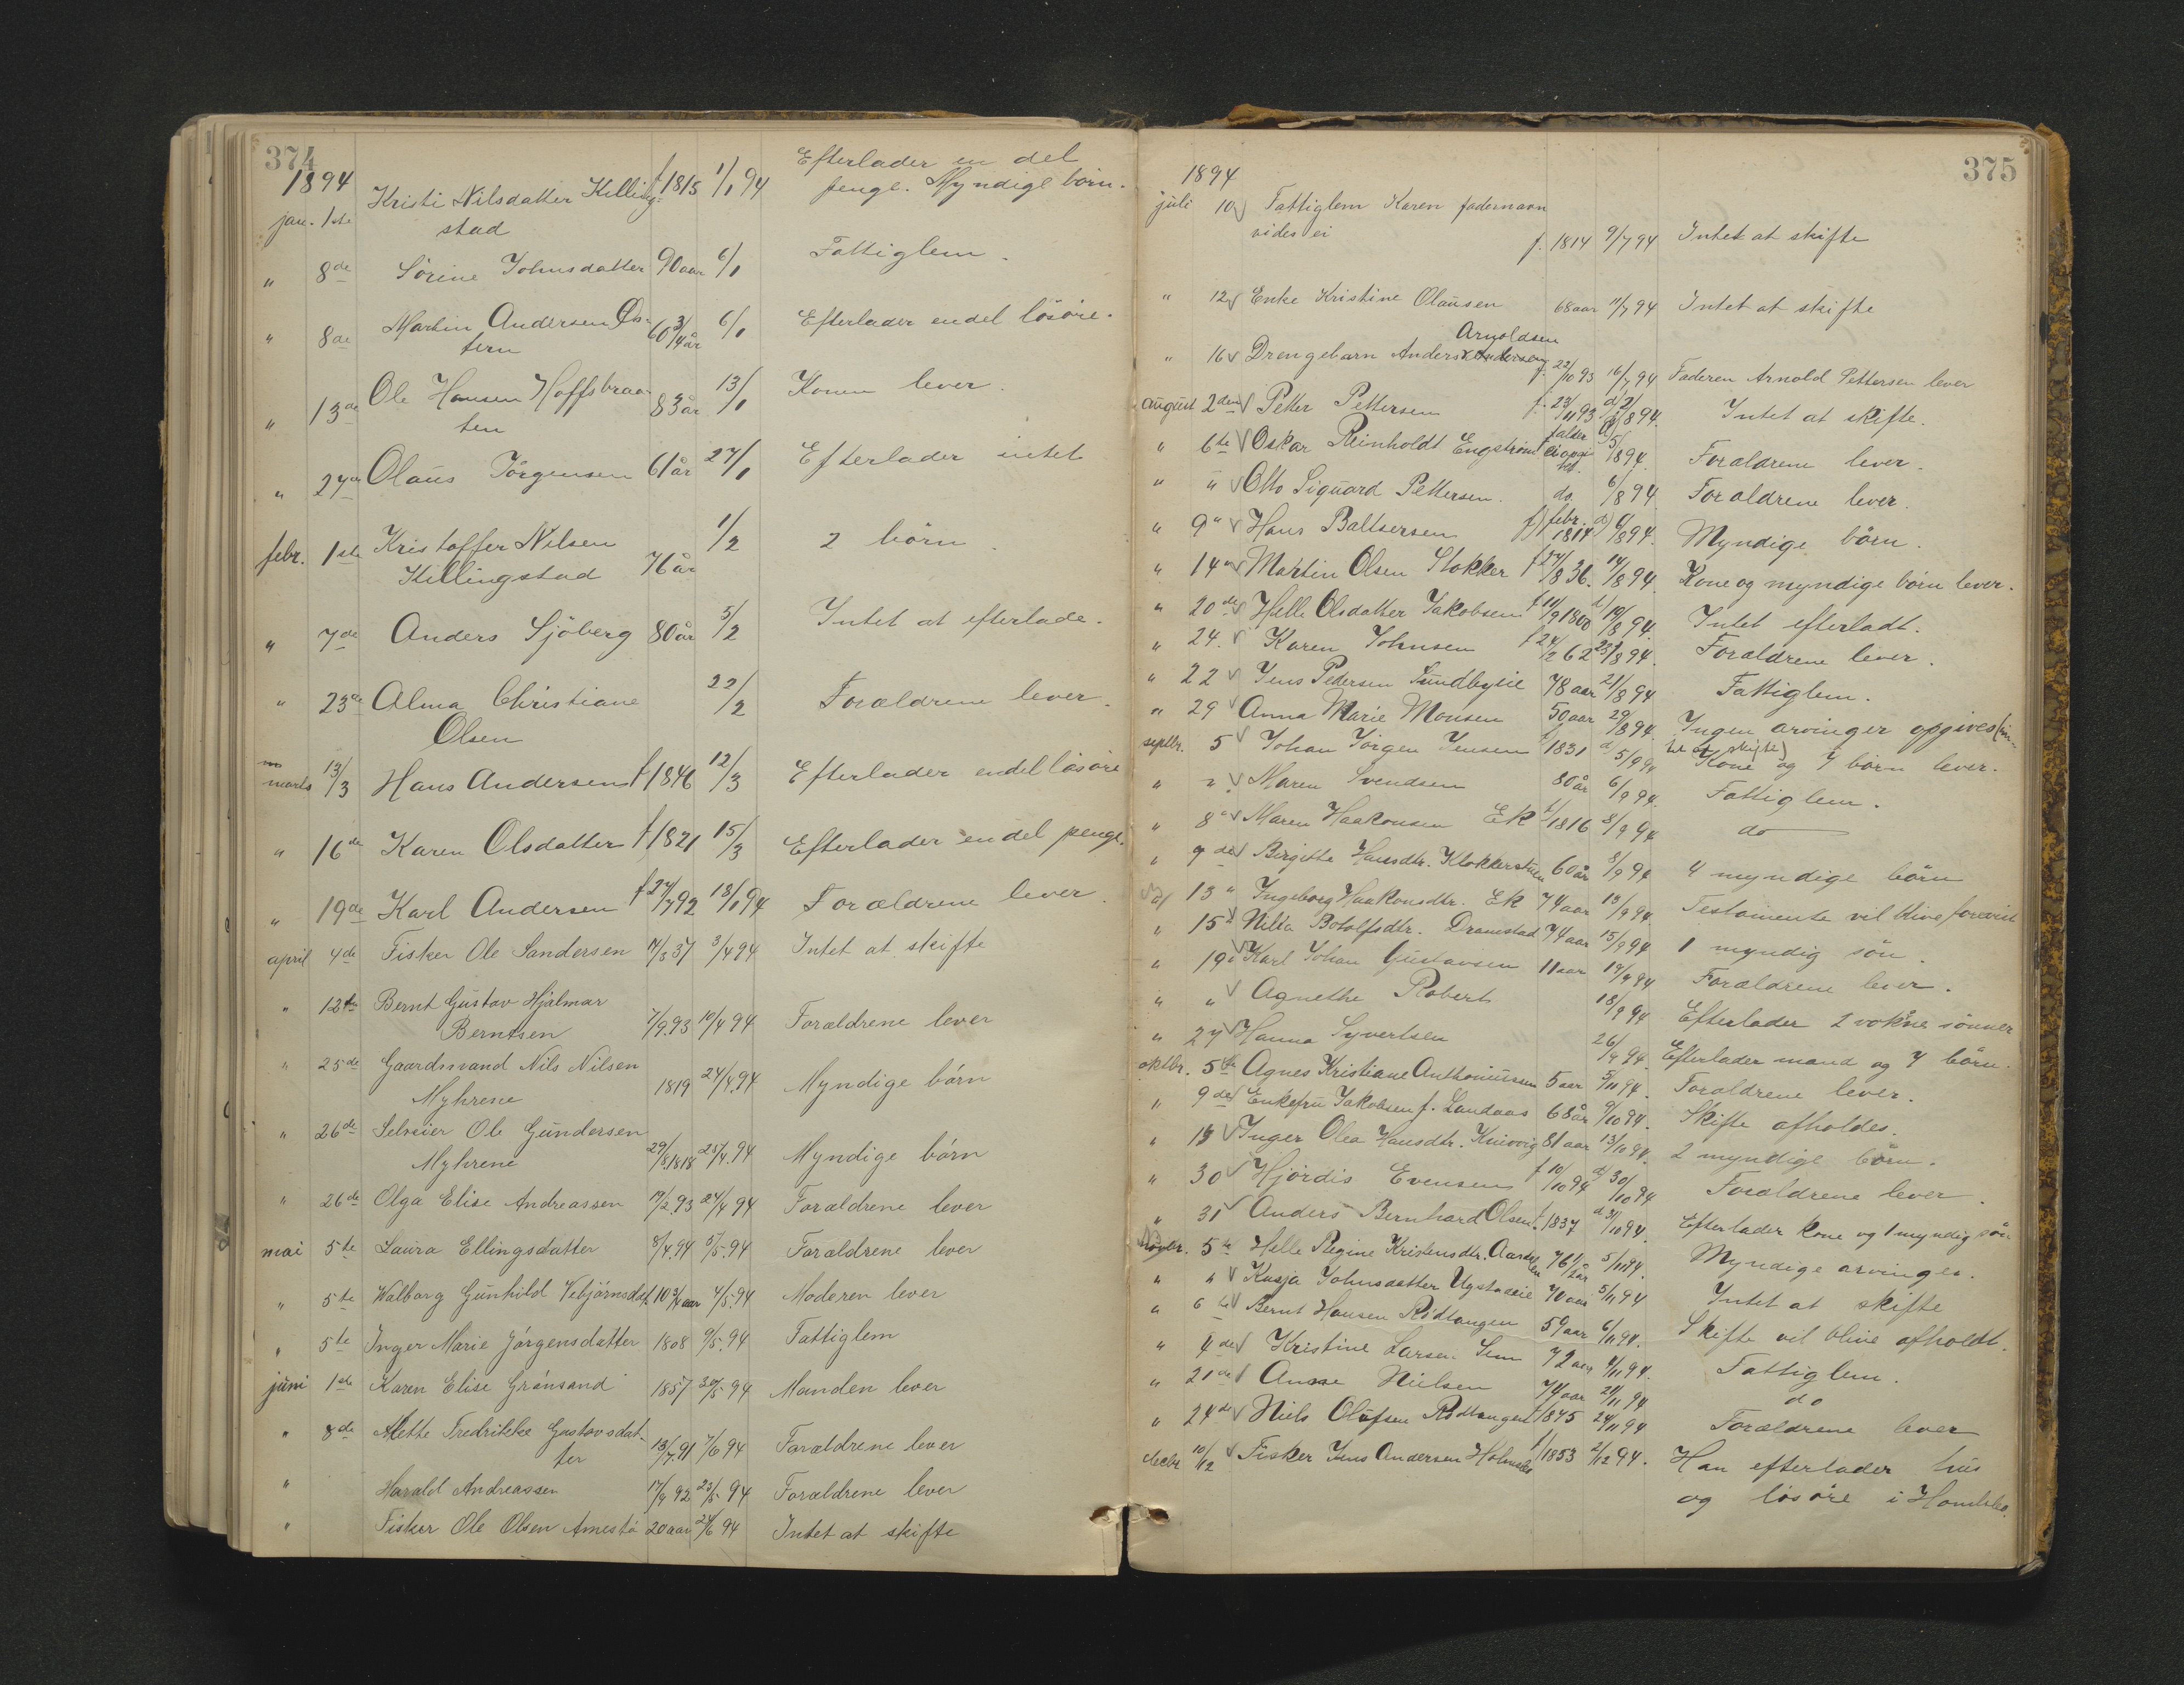 374
1894
Kristi Nilsdatter Killing- f 1815 1/1 94 Efterlader en del
jan. 1ste stad penge. Myndige börn.
" 8de Sörine Johnsdatter 90 aar 6/1 Fattiglem.
" 8de Martin Andersen 60 3/4 år 6/1 Efterlader endel lösöre.
" 13de Ole Hansen Hoffsbraa- 83 år 13/1 Konen lever.
ten
" 27de Olaus Jörgensen 61 år 27/1 Efterlader intet
febr. 1ste Kristoffer Nilsen 76 år 1/2 2 börn.
Killingstad
" 7de Anders Sjöberg 80 år 5/2 Intet at efterlade.
" 23de Alma Christiane 22/2 Forældrene lever.
Olsen
marts 13/3 Hans Andersen f 1846 12/3 Efterlader endel lösöre
" 16de Karen Olsdatter f 1821 15/3 Efterlader endel penge.
" 19de Karl Andersen f 27/7 92 18/1 94 Forældrene lever.
april 4de Fisker Ole Sandersen 14/3 37 3/4 94 Intet at skifte
" 12te Bernt Gustav Hjalmar
Berntsen 7/9.93 10/4 94 Forældrene lever
" 25de Gaardmand Nils Nilsen
Myhrene 1819 24/4.94 Myndige börn
" 26de Selveier Ole Gundersen
Myhrene 29/8.1818 25/4.94 Myndige börn
" 26de Olga Elise Andreassen 19/2.93 24/4 94 Forældrene lever
mai 5te Laura Ellingsdatter 8/4.94 5/5.94 Forældrene lever
" 5te Walborg Gunhild Vebjörnsdat. 10 3/4 aar 4/5.94 Moderen lever
" 5te Inger Marie Jörgensdatter 1808 9/5.94 Fattiglem
juni 1ste Karen Elise Grönsand 1857 30/5 94 Manden lever
" 8de Mette Fredrikke Gustavsdat-
ter 13/7.91 7/6 94 Forældrene lever
" Harald Andreassen 17/9 92 23/5 94 Forældrene lever
" Fisker Ole Olsen 20 aar 24/6 94 Intet at skifte
375
1894
juli 10 Fattiglem Karen fadernavn
vides ei f. 1814 9/7 94 Intet at skifte
" 12 Enke Kristine Olausen 68 aar 11/7 94 Intet at skifte
Arnoldsen
" 16 Drengebarn Anders Andersen f. 22/10 93 16/7 94 Faderen Arnold Pettersen lever
august 2den Petter Pettersen f. 23/11 93 d 2/8 94. Intet at skifte.
" 6te Oskar Reinholdt Engström falder ei opgi- vet. 5/8 94. Forældrene lever.
" " Otto Sigvard Pettersen. do. 6/8 94. Forældrene lever.
" 9" Hans Baltsersen f) febr. 1814 d) 6/8 94. Myndige börn.
" 14" Martin Olsen Stokker f 24/8 36. 14/8 94. Kone og myndige börn lever.
" 20de Helle Olsdatter Jakobsen f 11/9 1800 19/8 94. Intet efterladt.
" 24. Karen Johnsen f 24/2 62 23/8 94. Forældrene lever.
" 22 Jens Pedersen Sundbyeie 78 aar 21/8 94 Fattiglem.
" 29 Anna Marie Monsen 50 aar 29/8 94. Ingen arvinger opgives (in-
tet at skifte)
septbr. 5 Johan Jörgen Jensen 1831 d 5/9 94 Kone og 7 börn lever.
" ". Maren Svendsen 80 år 6/9 94. Fattiglem.
" 8" Maren Haakonsen Ek f/1816 8/9 94 do
" 9de Birgitte Hansdtr. Klokkerstuen 60 år 8/9 94 4 myndige börn
" 13" Ingeborg Haakonsdtr. Ek 74 aar 13/9 94. Testamente vil blive forevist
" 15 Nilla Botolfsdtr. Dramstad 74 aar 15/9 94 1 myndig sön.
" 19 Karl Johan Gustavsen 11 aar 19/9 94 Forældrene lever.
" " Agnethe Robert 18/9 94 Efterlader 2 vokne sönner
" 27 Hanna Syvertsen 26/9 94. Efterlader mand og 7 börn.
oktbr. 5te Agnes Kristiane Anthoniussen 5 aar 5/11 94. Forældrene lever.
" 9de Enkefru Jakobsen f. Landaas 68 år 9/10 94. Skifte afholdes.
" 13 Inger Olea Hansdtr. Knivvig 81 aar 13/10 94. 2 myndige börn.
" 30 Hjördis Evensen f 10/10 94 d) 30/10 94 Forældrene lever.
" 31 Anders Bernhard Olsen. f 1837 d 31/10 94. Efterlader kone og 1 myndig sön
novbr. 5te Helle Regine Kristensdtr. 76 1/2 år 5/11 94. Myndige arvinger.
" " Kasja Johnsdatter 70 aar 5/11 94 Intet at skifte
" 6te Bernt Hansen Rödtangen 59 aar 6/11 94. Skifte vil blive afholdt.
" 4de Kristine Larsen Sem 72 aar 4/11 94. Fattiglem.
" 21de Anne Nielsen 74 aar 21/11 94 do
" 24de Niels Olufsen Rödtangen f 1875 24/11 94 Forældrene lever
decbr 10/12 Fisker Jens Andersen f/1853 2/12 94. Han efterlader hus
og lösöre i